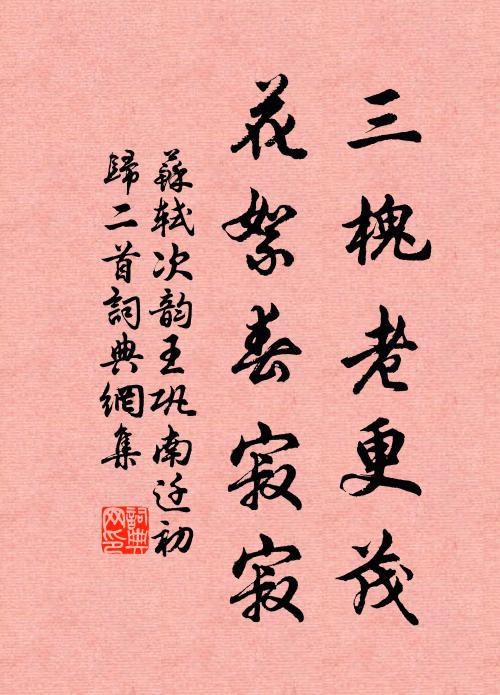 三槐老更茂
花絮春寂寂
蘇軾次韵王巩南迁初
歸二首詞典網集
詞典
网印